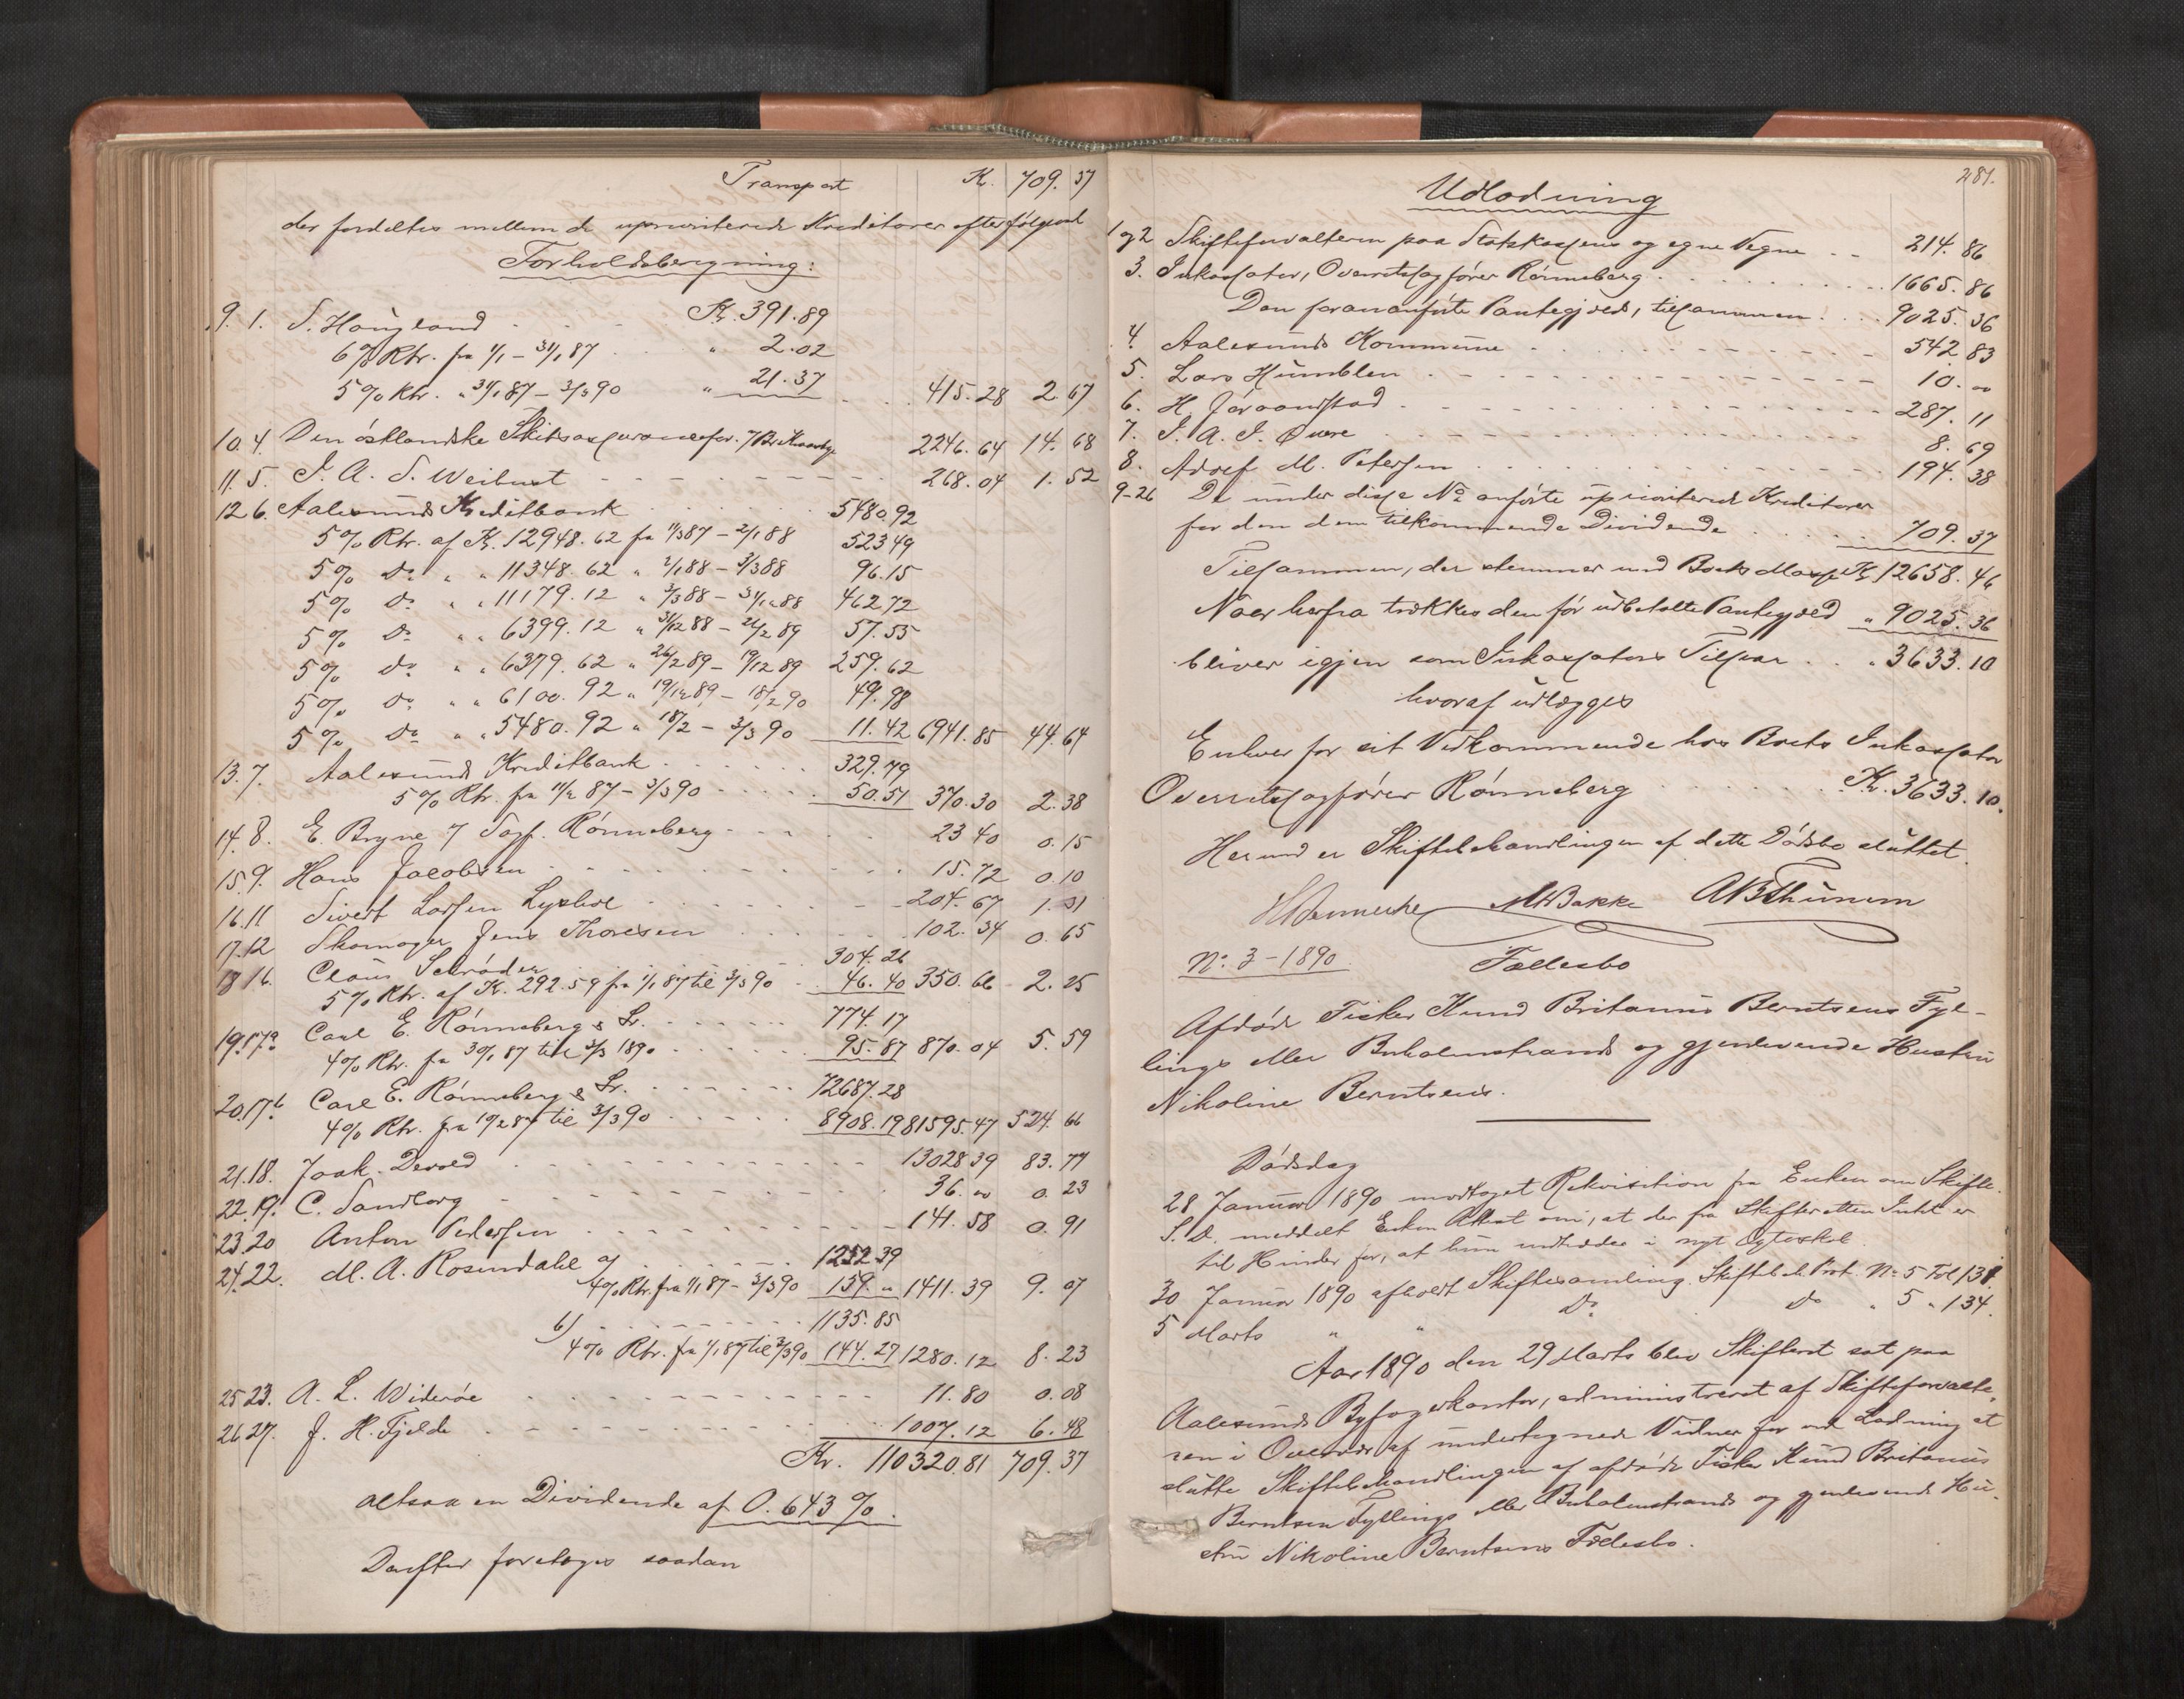 Transport Kr. 709. 37
der fordeltes mellem de uprioriterede Kreditorer efter følgende
Forholdsberegning:
9. 1. S. Haugland Kr. 391.89
6% Rtr. fra 1/1 – 31/1 87 " 2.02
5% Rtr. " 31/1 87 – 3/3 90 " 21.37 415.28 2.67
10. 4. Den østlandske Skibsassuranceför. 2246.64 14.68
11. 5. J. A. S. Weibust 268.04 1.52
12 6. Aalesunds Kreditbank 5480.92
5% Rtr. af Kr. 12948.62 fra 11/3 87 – 2/1 88 523 49
5% do " " 11348.62 " 2/1 88 – 3/3 88 96.15
5% do " " 11179.12 " 3/3 88 – 31/12 88 462 72
5% do " " 6399.12 " 31/12 88 – 26/2 89 57.55
5% do " " 6379.62 " 26/2 89 – 19/12 89 259.62
5% do " " 6100.92 " 19/12 89 – 18/2 90 49.98
5% do " " 5480.92 " 18/2 – 3/3 90 11.42 6941.85 44.64
13. 7. Aalesunds Kreditbank 329.79
5% Rtr. fra 11/2 87 – 3/3 90 50.51 370.30 2.38
14. 8. E. Bryne / Sagf. Rønneberg 23 40 0.15
15 9. Hans Jacobsen 15.72 0.10
16. 11 Sivert Larsen 204.67 1.31
17. 12 Skomager Jens Thoresen 102.34 0.65
18 16. Claus Schrøder 304.26
5% Rtr. af Kr. 292.59 fra 1/1 87 til 3/3 90 46.40 350.66 2.25
19. 17a Carl E. Rønneberg & Sr. 774.17
4% Rtr. fra 30/1 87 til 3/3 1890 95.87 870.04 5.59
20. 17b Carl E. Rønneberg & Sr. 72687.28
4% Rtr. fra 10/2 87 til 3/3 90 8908.19 81595.47 524.66
21. 18. Joak. Devold 13028 39 83.77
22. 19. C. Sandborg 36.00 0.23
23. 20 Anton Pedersen 141.58 0.91
24. 22. M. A. Rosendahl a) 1252 39
4% Rtr. fra 1/1 87 – 3/3 90 159. " 1411.39 9.07
b) 1135.85
4% Rtr. fra 1/1 87 til 3/3 90 144.27 1280.12 8.23
25 23. A. L. Widerøe 11.80 0.08
26 27. J. H. Fjelde 1007.12 6.48
Kr. 110320.81 709.37
altsaa en Dividende af 0.643 %.
Derefter foretoges saadan
281.
Udlodning
1 og 2 Skifteforvalteren paa Statskassens og egne Vegne 214.86
3. Inkassator, Overretssagfører Rønneberg 1665.86
Den foranførte Pantegjæld, tilsammen 9025.36
4. Aalesunds Kommune 542 83
5. Lars Humblen 10.00
6. H. 287.11
7. J. A. J. Øvre 8.69
8. Adolf M. Petersen 194.38
9–26 De under disse No anførte uprioriterede Kreditorer
for den dem tilkommende Dividende 709.37
Tilsammen, der stemmer med Boets Masse Kr. 12658.46
Naar herfra trækkes den før udbetalte Pantegjæld " 9025.36
bliver igjen som Inkassators Tilsvar " 3633.10
hvoraf udlægges
Enhver for sit Vedkommende hos Boets Inkassator
Overretssagfører Rønneberg Kr. 3633.10.
Hermed er Skiftebehandlingen af dette Dødsbo sluttet.
MHBakke ABThunem
No. 3 – 1890. Fællesbo
Afdøde Fisker Knud Britanus Berntsens Fyl-
lings eller Buholmstrands og gjenlevende Hustru
Nikoline Berntsens.
Dødsdag
28 Januar 1890 modtaget Rekvisition fra Enken om Skifte.
S. D. meddelt Enken Attest om, at der fra Skifteretten Intet er
til Hinder for, at hun indtræder i nyt Ægteskab.
30 Januar 1890 afholdt Skiftesamling. Skiftebeh. Prot. No 5 Fol 131.
5 Marts " " Do Do " 5 " 134.
Aar 1890 den 29 Marts blev Skifteret sat paa
Aalesunds Byfogedkontor, administreret af Skifteforvalte-
ren i Overvær af undertegnede Vidner for ved Lodning at
slutte Skiftebehandlingen af afdøde Fisker Knud Britanus
Berntsen Fyllings eller Buholmstrands og gjenlevende Hu-
stru Nikoline Berntsens Fællesbo.